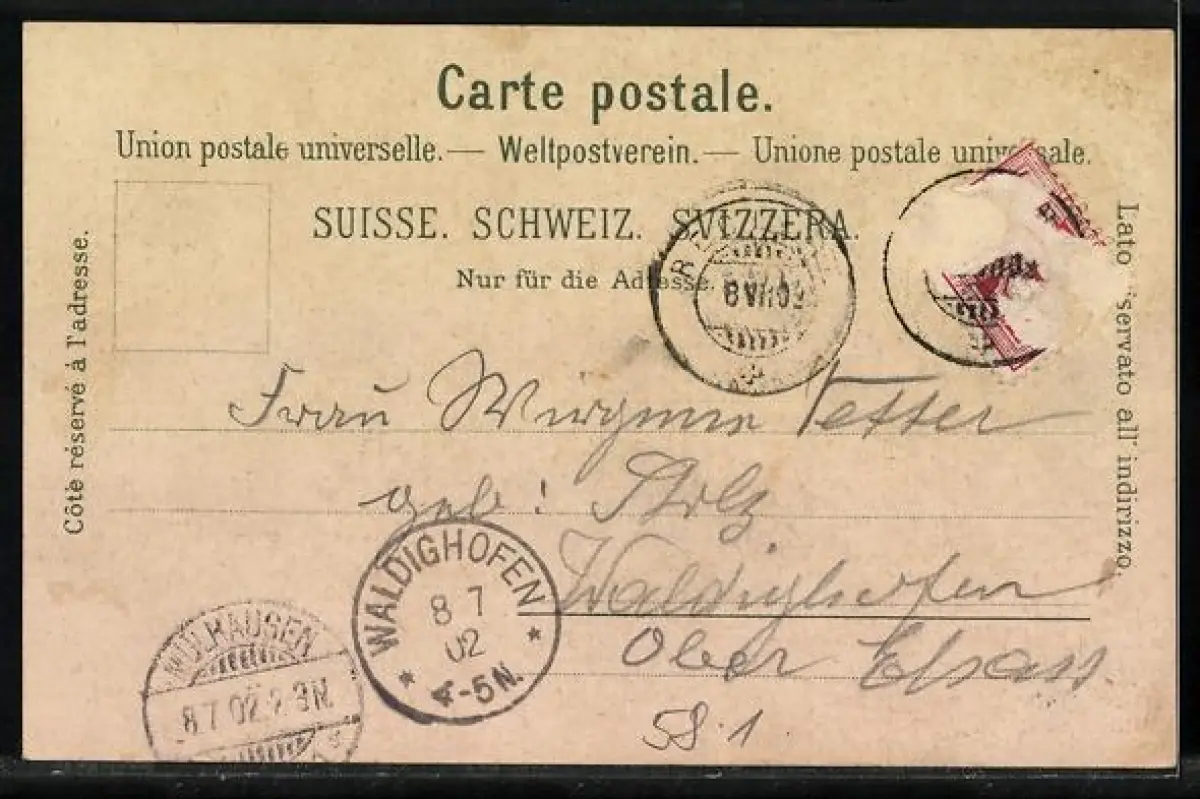 Carte postale.
Union postale universelle. — Weltpostverein. — Unione postale universale.
SUISSE. SCHWEIZ. SVIZZERA.
Nur für die Adresse.
Côté réservé à l'adresse.
Lato servato all' indirizzo.
8 VII 02
Frau Wirginie Vetter
geb: Stolz
Waldighofen
Ober Elsass
58.1
WALDIGHOFEN
8 7
02
4-5 N.
MÜLHAUSEN
8 7 02 2-3N